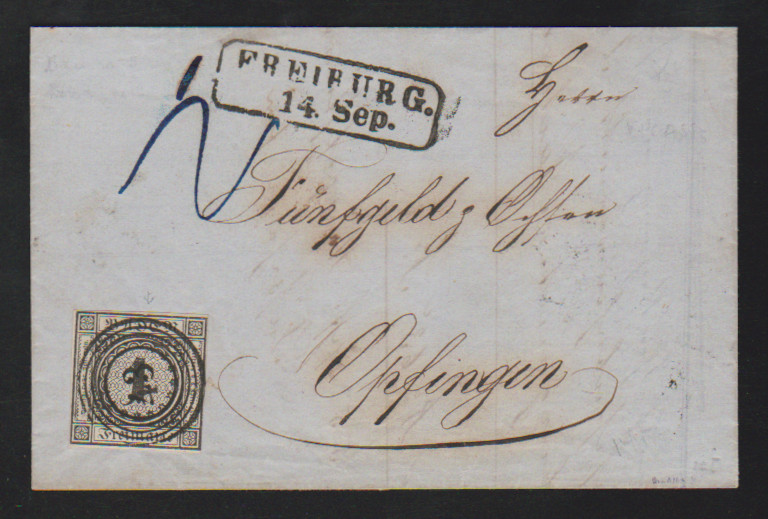 FREIBURG.
14. Sep.
Herrn
Fünfgeld z Ochsen
Opfingen
BADEN
1
Freimarke